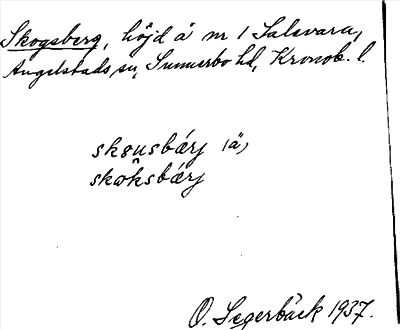 Skogsberg, höjd å nr 1 Salsvara,
Angelstads sn, Sunnerbo hd, Kronob. l.
skɷusbǽrj (ä)
skœksbǽrj
O. Segerbäck 1937.